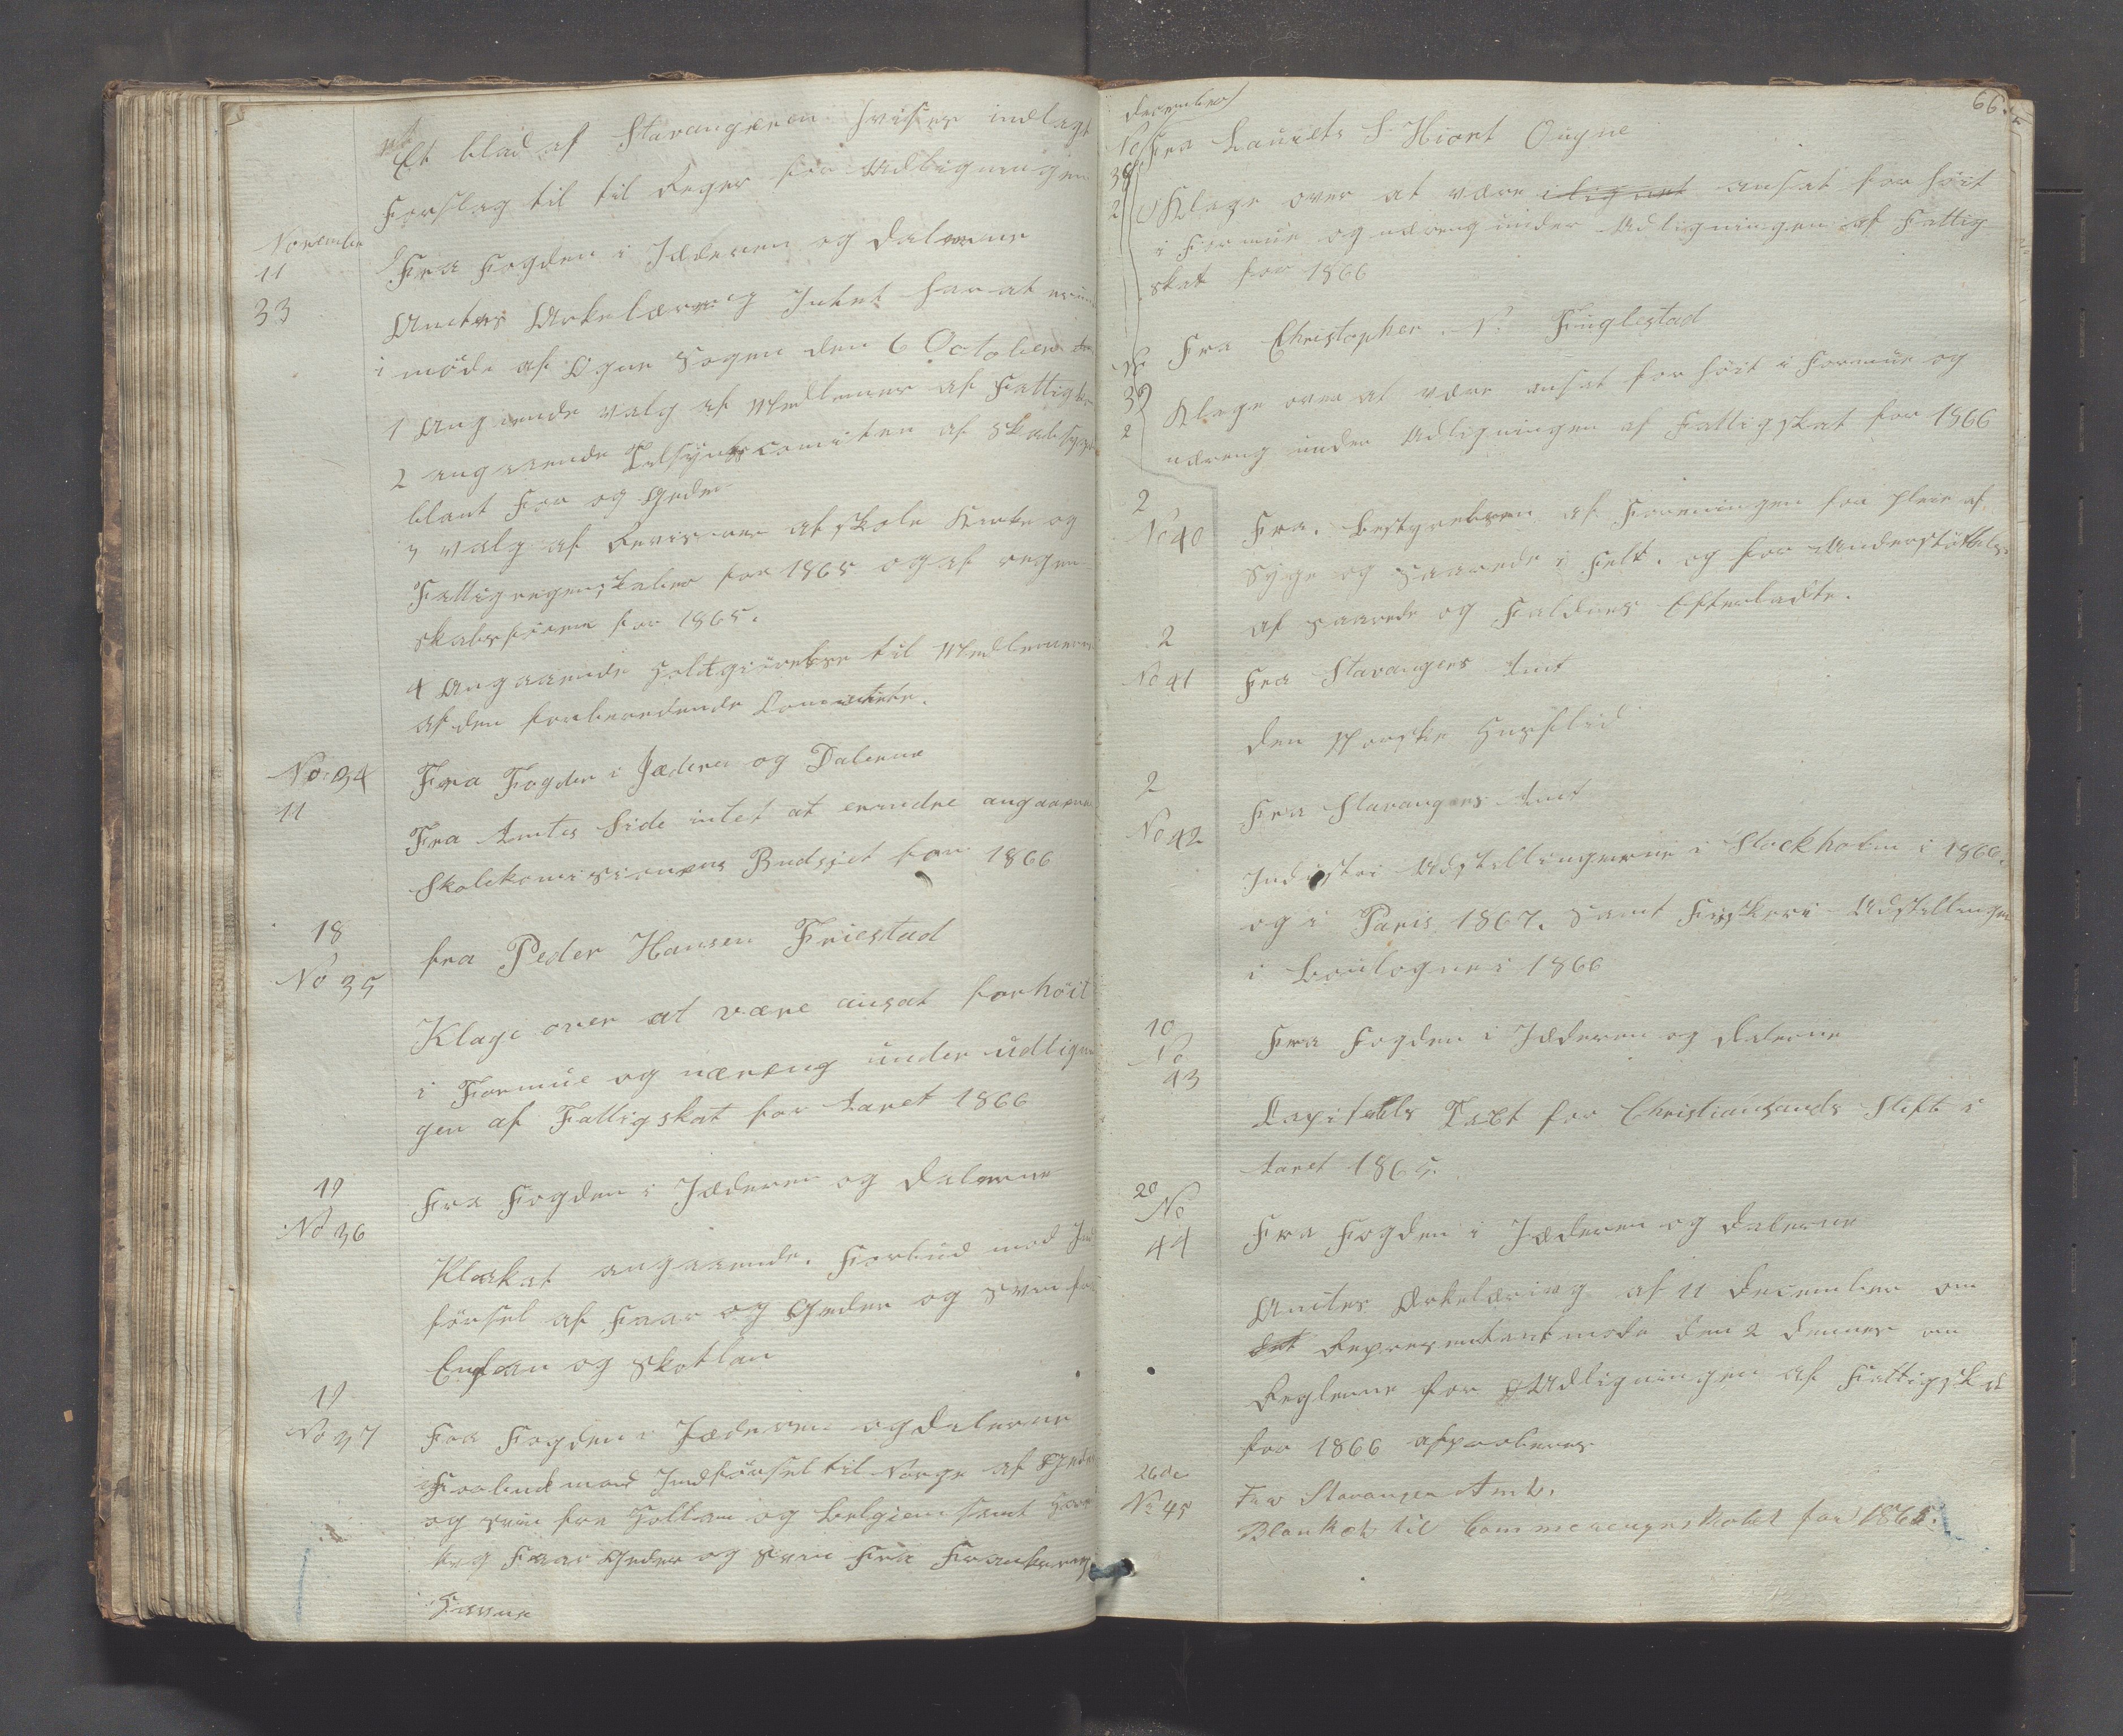 Et blad af Stavangeren hvises indlagt
Forslag til til Regler for Udligningen
November
11
33
Fra Fogden i Jæderen og Dalerne
Amtets Erkelæring Intet har at erin
i møde af Ogne Sogen den 6 October
1 Angaaende valg af Medlemer af Fattigko
2 angaaende Tilsynscomiteen af Skabsyge
blant Faar og Geder
3 valg af Revisorer af Skole Kirke og
Fattigregenskaber for 1865 og af regen
skabsførere for 1865.
4 Angaaende Godtgiørelse til Medlemerne
af den forberedende Commitee.
No 34
11
Fra Fogden i Jæderen og Dalerne
Fra Amtes Side intet at erindre angaaende
Skolekomissionens Budsjet for 1866
18
No 35
fra Peder Hansen Friestad
Klage over at være ansat forhøit
i Formue og næreng under udlign
gen af Fattigskat for Aaret 1866
19
No 36
Fra Fogden i Jæderen og Dalerne
Plakat angaaende. Forbud mod Ind
førsel af Faar og Geder og Svin fra
Englan og Skotlan
19
No 37
Fra Fogden i Jæderen og Dalerne
Forbud mod Indførsel til Norge af Geder
og Svin fra Hollan og Belgien samt Horn
kvæg Faar Geder og Svin Fra Frankerig
Havne
66.
December
No
38
2
Fra Laurits S. Hiort Ougne
Klage over at være ilignet ansat for høit
i Formue og næreng under Udligningen af Fattig
skat for 1866
No
39
2
Fra Christopher N. Fuglestad
Klage over at være ansat for høit i Formue og
næreng under Udligningen af Fattigskat for 1866
2
No 40
Fra. Bestyrelsen af Foreningen for Pleie af
Syge og Saarede i Felt. og for Understøttelse
af Saarede og Faldnes Efterladte.
2
No 41
Fra Stavangers Amt
Den Norske Husflid
2
No 42
Fra Stavangers Amt
Industri Udstillingerne i Stockholm i 1866.
og i Paris 1867. Samt Fiskeri-Udstillingen
i Boulogne i 1866
10
No
43
Fra Fogden i Jæderen og Dalerne
Capitels Taxt for Christiansands Stift i
Aaret 1865.
20
No
44
Fra Fogden i Jæderen og Dalerne
Amtes Erkelæring af 11 December om
det Representantmøde den 2 dennes om
Reglerne for Udligningen af Fattigskat
for 1866 approberes
26de
No 45
Fra Stavanger Amt.
Blanket til Commeneregneskabet for 1865.